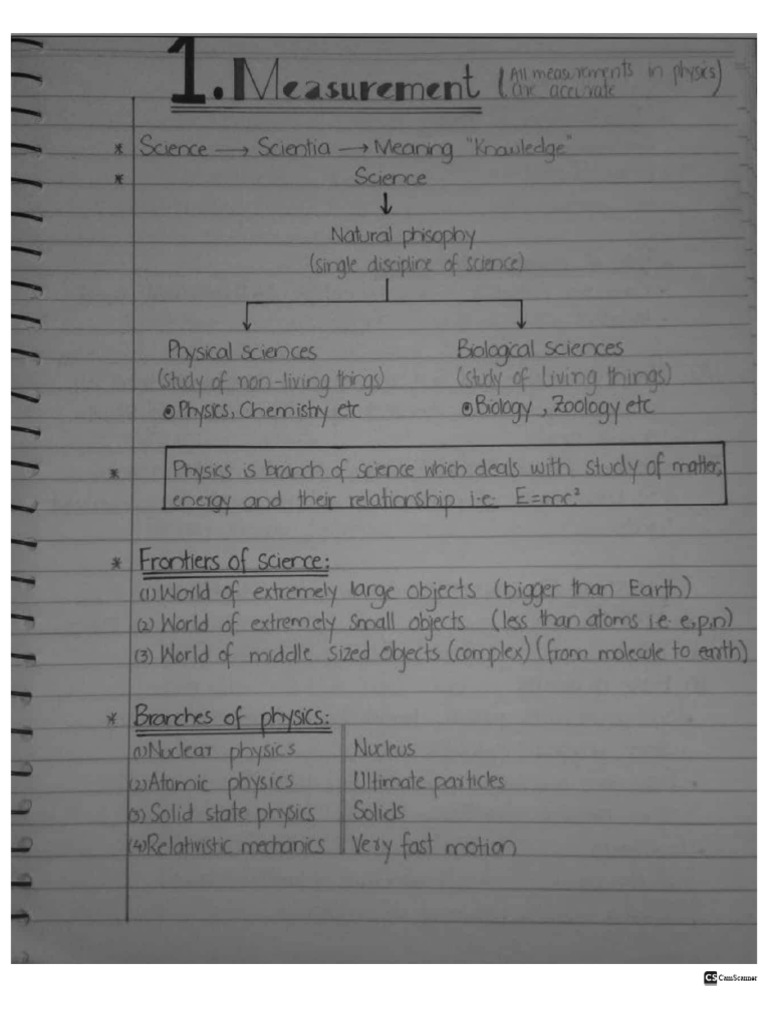 1. Measurement (All measurements in physics are accurate)
* Science → Scientia → Meaning "Knowledge"
* Science
↓
Natural phisophy
(single discipline of science)
Physical sciences
(study of non-living things)
Physics, Chemistry etc
Biological sciences
(study of living things)
Biology, Zoology etc
* Physics is branch of science which deals with study of matter,
energy and their relationship i.e. E=mc²
* Frontiers of science:
(1) World of extremely large objects (bigger than Earth)
(2) World of extremely small objects (less than atoms i.e. e,p,n)
(3) World of middle sized objects (complex) (from molecule to earth)
* Branches of physics:
(1) Nuclear physics Nucleus
(2) Atomic physics Ultimate particles
(3) Solid state physics Solids
(4) Relativistic mechanics Very fast motion
CS CamScanner